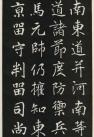 南東道并河南莘
道諸節度防禦兵
馬元帥仍擁知東
京留守判留司尚